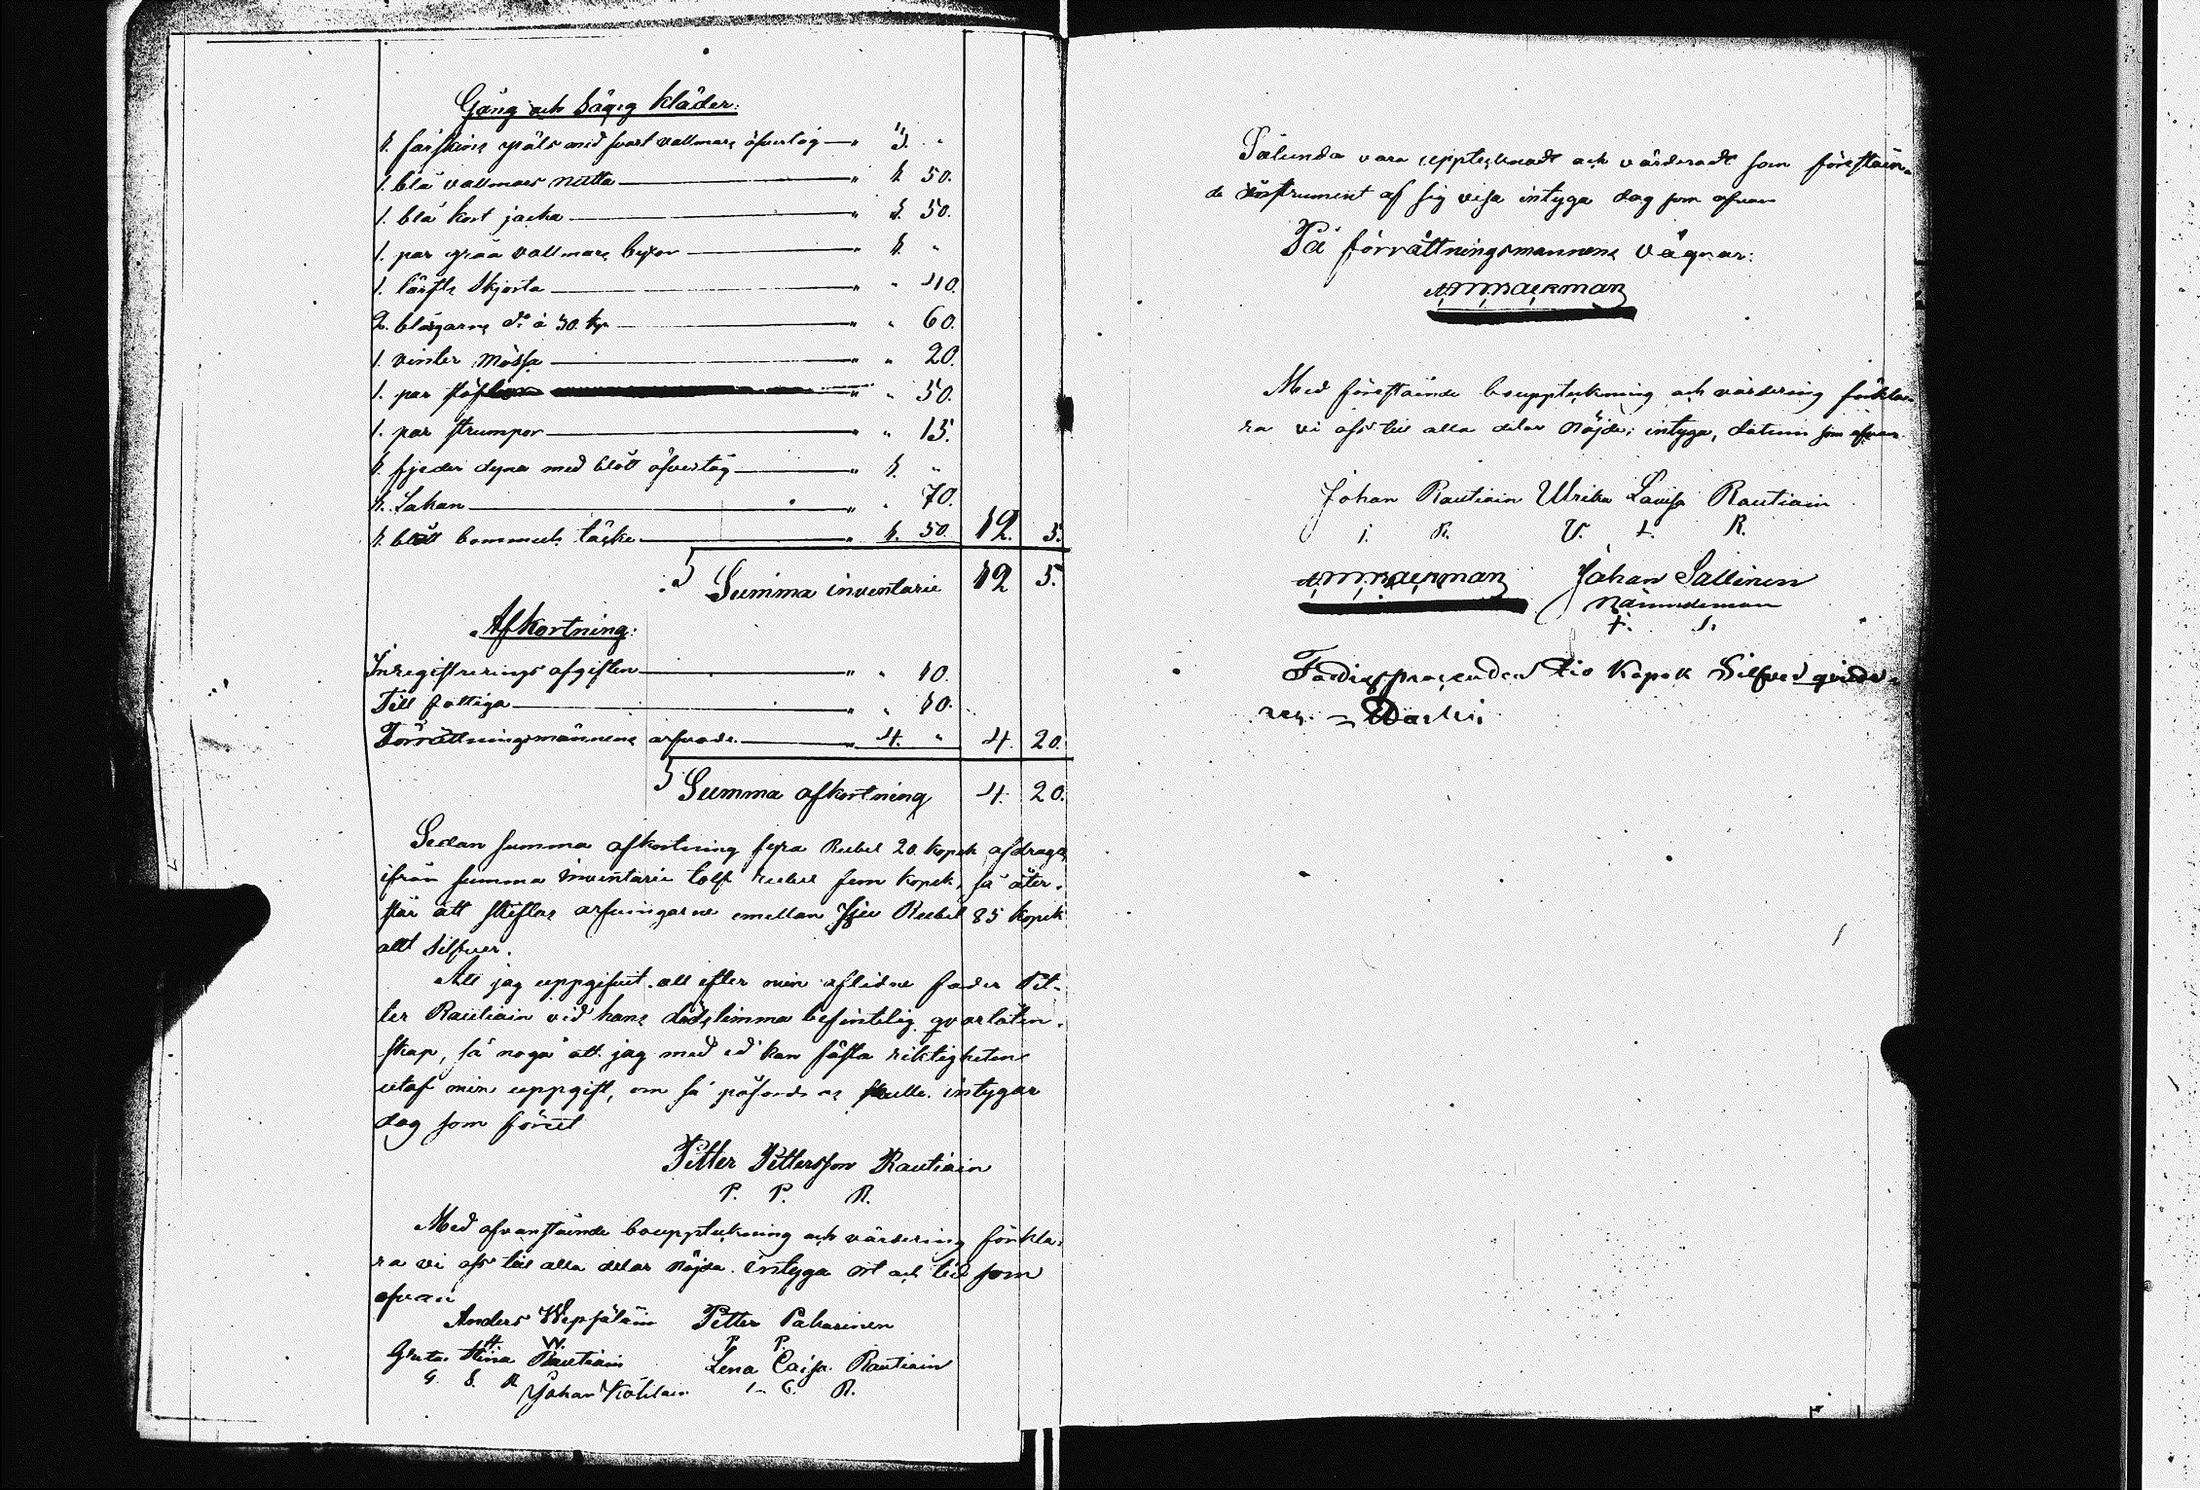 Gång och Säng kläder:
1. fårskins päls med svart vallmars öfvertåg — " 3. "
1. blå vallmars mutta — " 1. 50.
1. blå kort jacka — " 1. 50.
1. par gråa vallmars byxor — " 1. "
1. lärfts skjorta — " " 40.
2. blågarns d:o à 30. kp — " " 60.
1. vinter mössa — " " 20.
1. par stöflor — " " 50.
1. par strumpor — " " 15.
1. fjeder dyna med blått öfvertåg — " 1. "
1. Lakan — " " 70.
1. blått bommuls täcke — " 1. 50. 12. 5.
Summa inventarie 12 5.
Afkortning:
Inregistrerings afgiften — " " 10.
Till fattiga — " " 10.
Förrättningsmännens arfvode — " 4. " 4. 20.
Summa afkortning 4. 20.
Sedan summa afkortning fyra Rubel 20. kopek afdrages
ifrån summa inventarie tolf rubel fem kopek, så åter-
står att skiftas arfvingarne emellan sju Rubel 85 kopek
allt silfver.
Att jag uppgifvit all efter min aflidne fader Pet-
ter Rautiain vid hans dödstimma befintelig qvarlåten-
skap, så noga att jag med ed kan fästa riktigheten
utaf min uppgift, om så påfordras skulle. intygar
dag som förut
Petter Pettersson Rautiain
P. P. R.
Med ofvanstående bouppteckning och värdering förkla-
ra vi oss till alla delar nöjda. intyga ort och tid som
ofvan
Anders Petter Pakarinen
A W. P. P.
Greta Stina Rautiain Lena Caisa Rautiain
G. S. R. L. C. R.
Johan
Sålunda vara upptecknadt och värderadt som förestaen-
de instrument af sig visa intyga dag som ofvan
På förrättningsmannens vägnar:
Med förestående bouppteckning och värdering förkla-
ra vi oss till alla delar nöjda; intyga, datum som ofvan
Johan Rautiain Ulrika Lovisa Rautiain
J. R. U. L. R.
Johan Sallinen
Nämndeman
J. S.
Fattigprocenden tio Kopek Silfver qvitte-
ras.